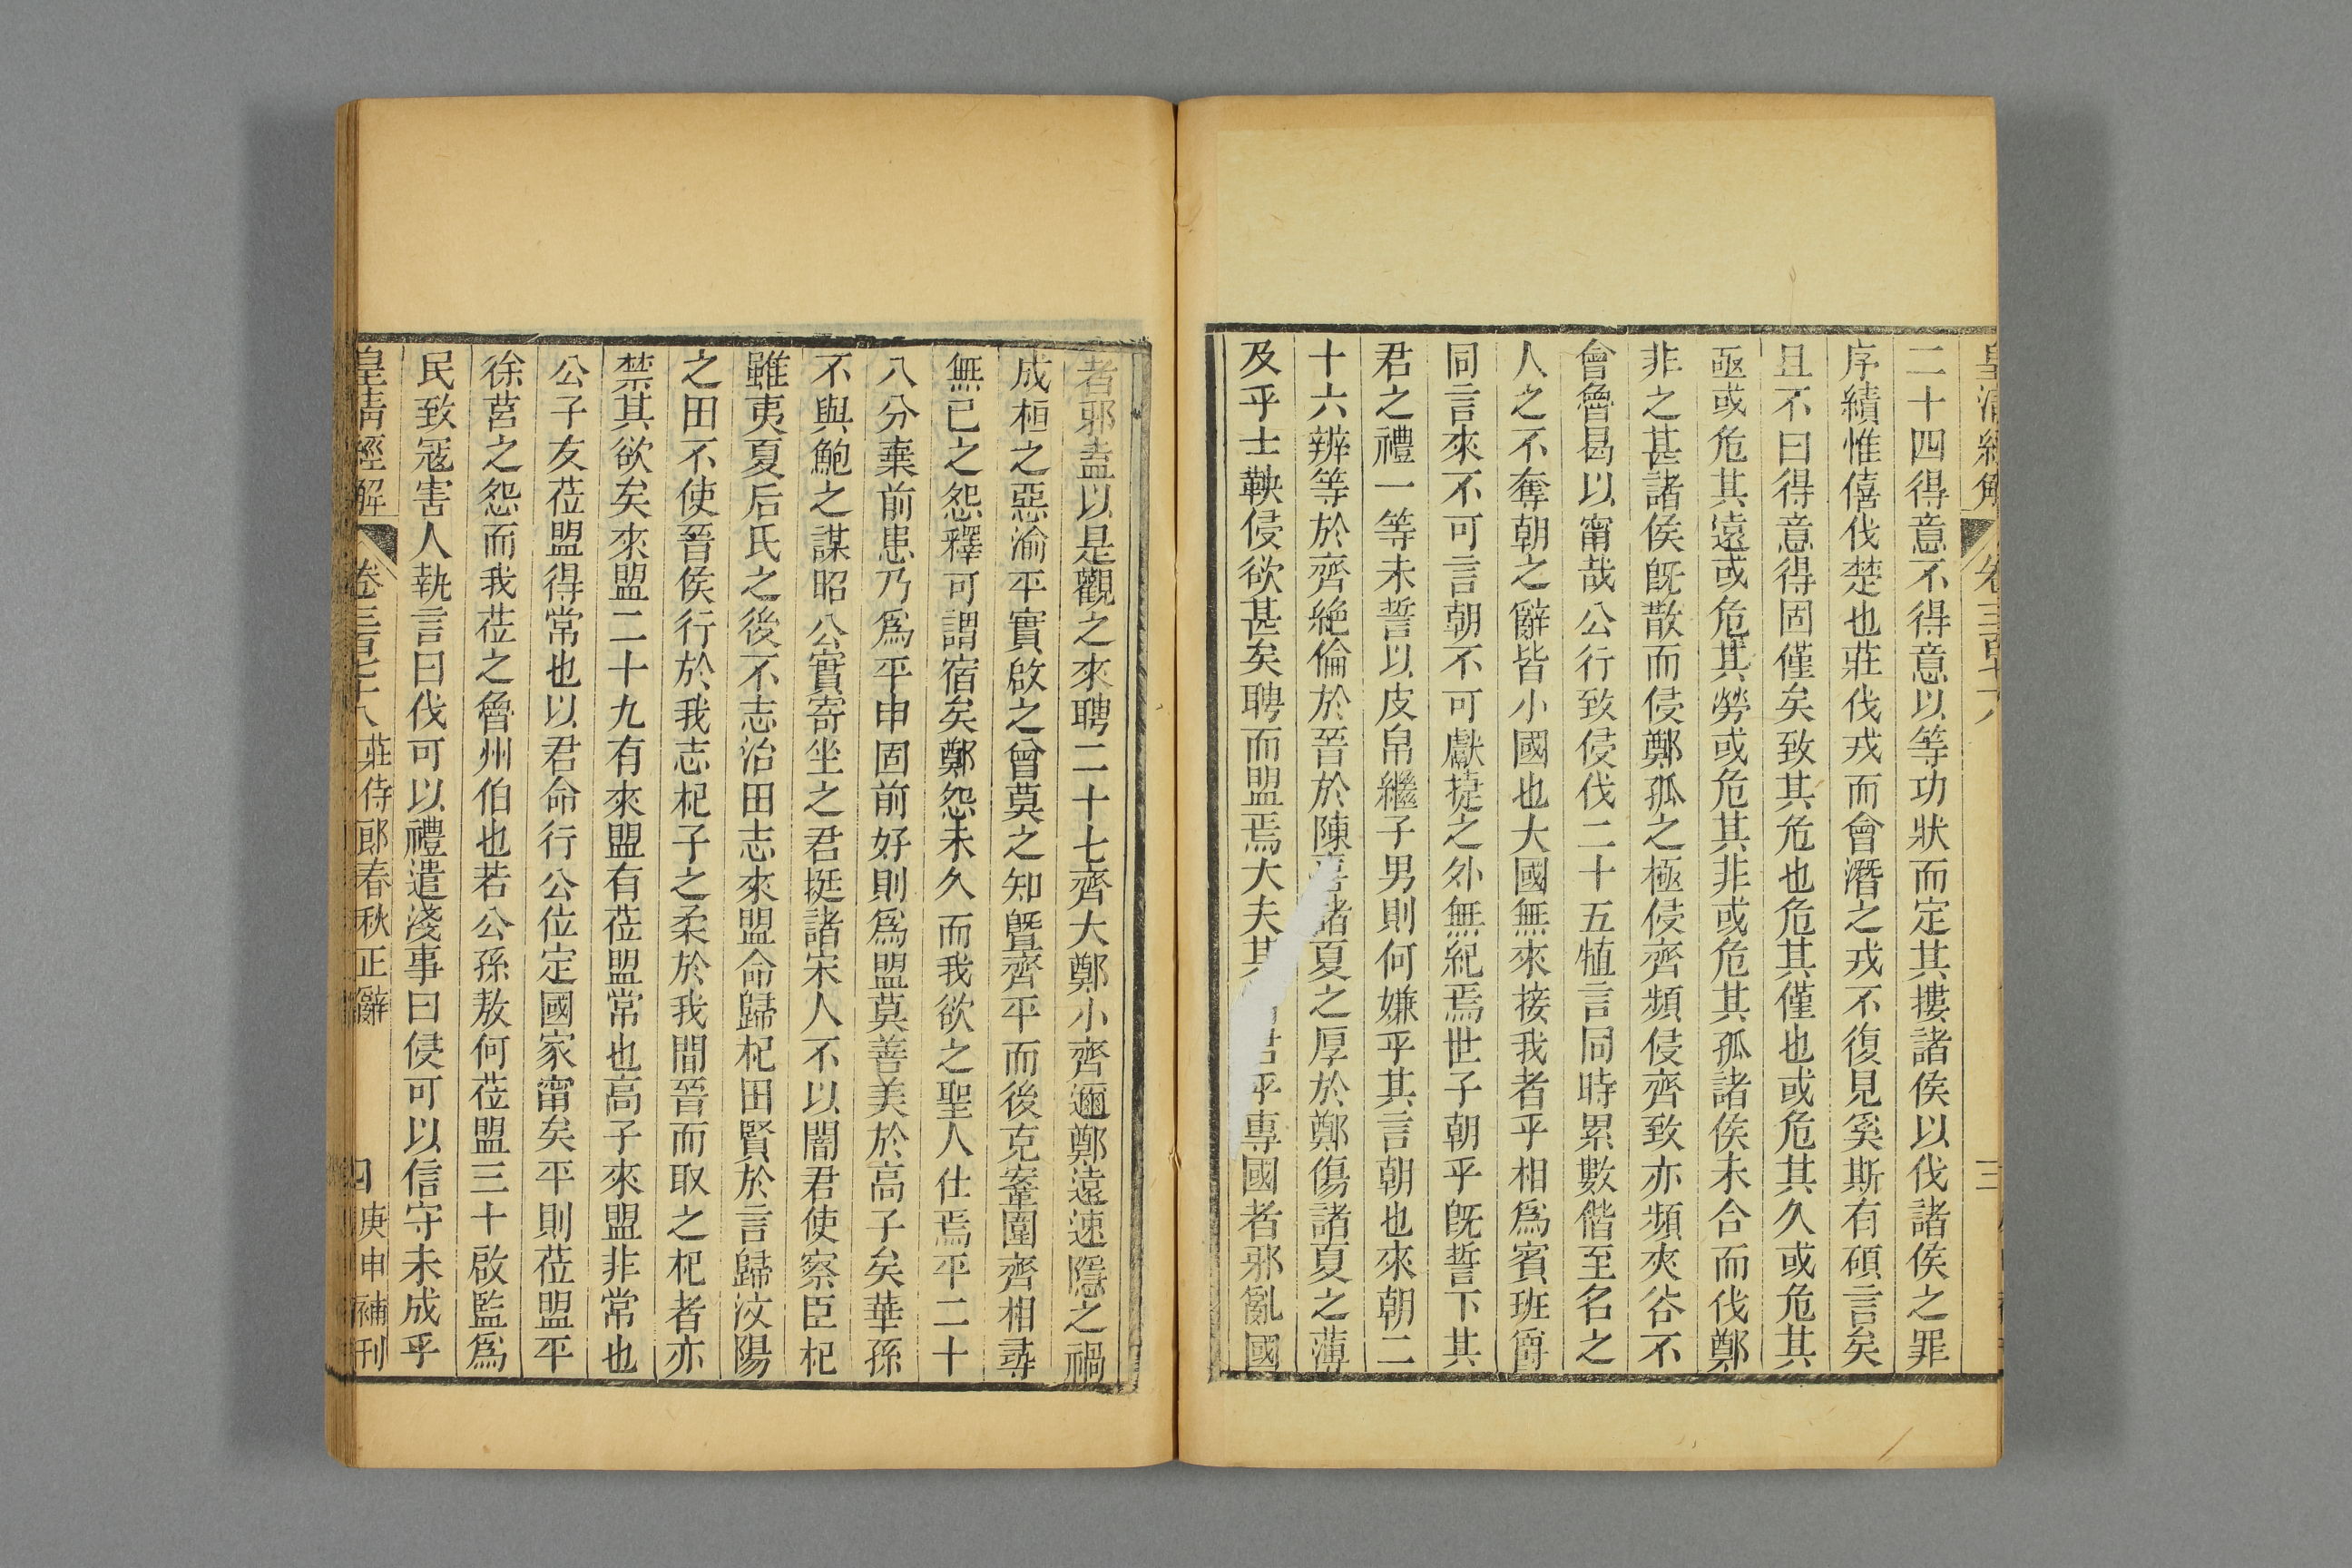 皇清經解 卷三百七十八 三
二十四得意不得意以等功狀而定其摟諸侯以伐諸侯之罪
序績惟僖伐楚也莊伐戎而會潛之戎不復見奚斯有碩言矣
且不曰得意得固僅矣致其危也危其僅也或危其久或危其
亟或危其遠或危其勞或危其非或危其孤諸侯未合而伐鄭
非之甚諸侯旣散而侵鄭孤之極侵齊頻侵齊致亦頻夾谷不
會魯曷以甯哉公行致侵伐二十五牰言同時累數偕至名之
人之不奪朝之辭皆小國也大國無來接我者乎相爲賓班爵
同言來不可言朝不可獻㨗之外無紀焉世子朝乎旣誓下其
君之禮一等未誓以皮帛繼子男則何嫌乎其言朝也來朝二
十六辨等於齊絶倫於晉於陳喜諸夏之厚於鄭傷諸夏之薄
及乎士鞅侵欲甚矣聘而盟焉大夫其 君乎專國者邪亂國
者邪蓋以是觀之來聘二十七齊大鄭小齊邇鄭遠速隱之禍
成桓之惡渝平實啟之曾莫之知曁齊平而後克鞌圍齊相尋
無已之怨釋可謂宿矣鄭怨未久而我欲之聖人仕焉平二十
八分棄前患乃爲平申固前好則爲盟莫善美於高子矣華孫
不與鮑之謀昭公實寄坐之君挺諸宋人不以闇君使察臣杞
雖夷夏后氏之後不志治田志來盟命歸杞田賢於言歸汶陽
之田不使晉侯行於我志杞子之柔於我閒晉而取之杞者亦
禁其欲矣來盟二十九有來盟有莅盟常也高子來盟非常也
公子友莅盟得常也以君命行公位定國家甯矣平則莅盟平
徐莒之怨而我莅之魯州伯也若公孫敖何莅盟三十啟監爲
民致寇害人執言曰伐可以禮遣淺事曰侵可以信守未成乎
皇清經解 卷三百七十八 莊侍郞春秋正辭 四 庚申補刊